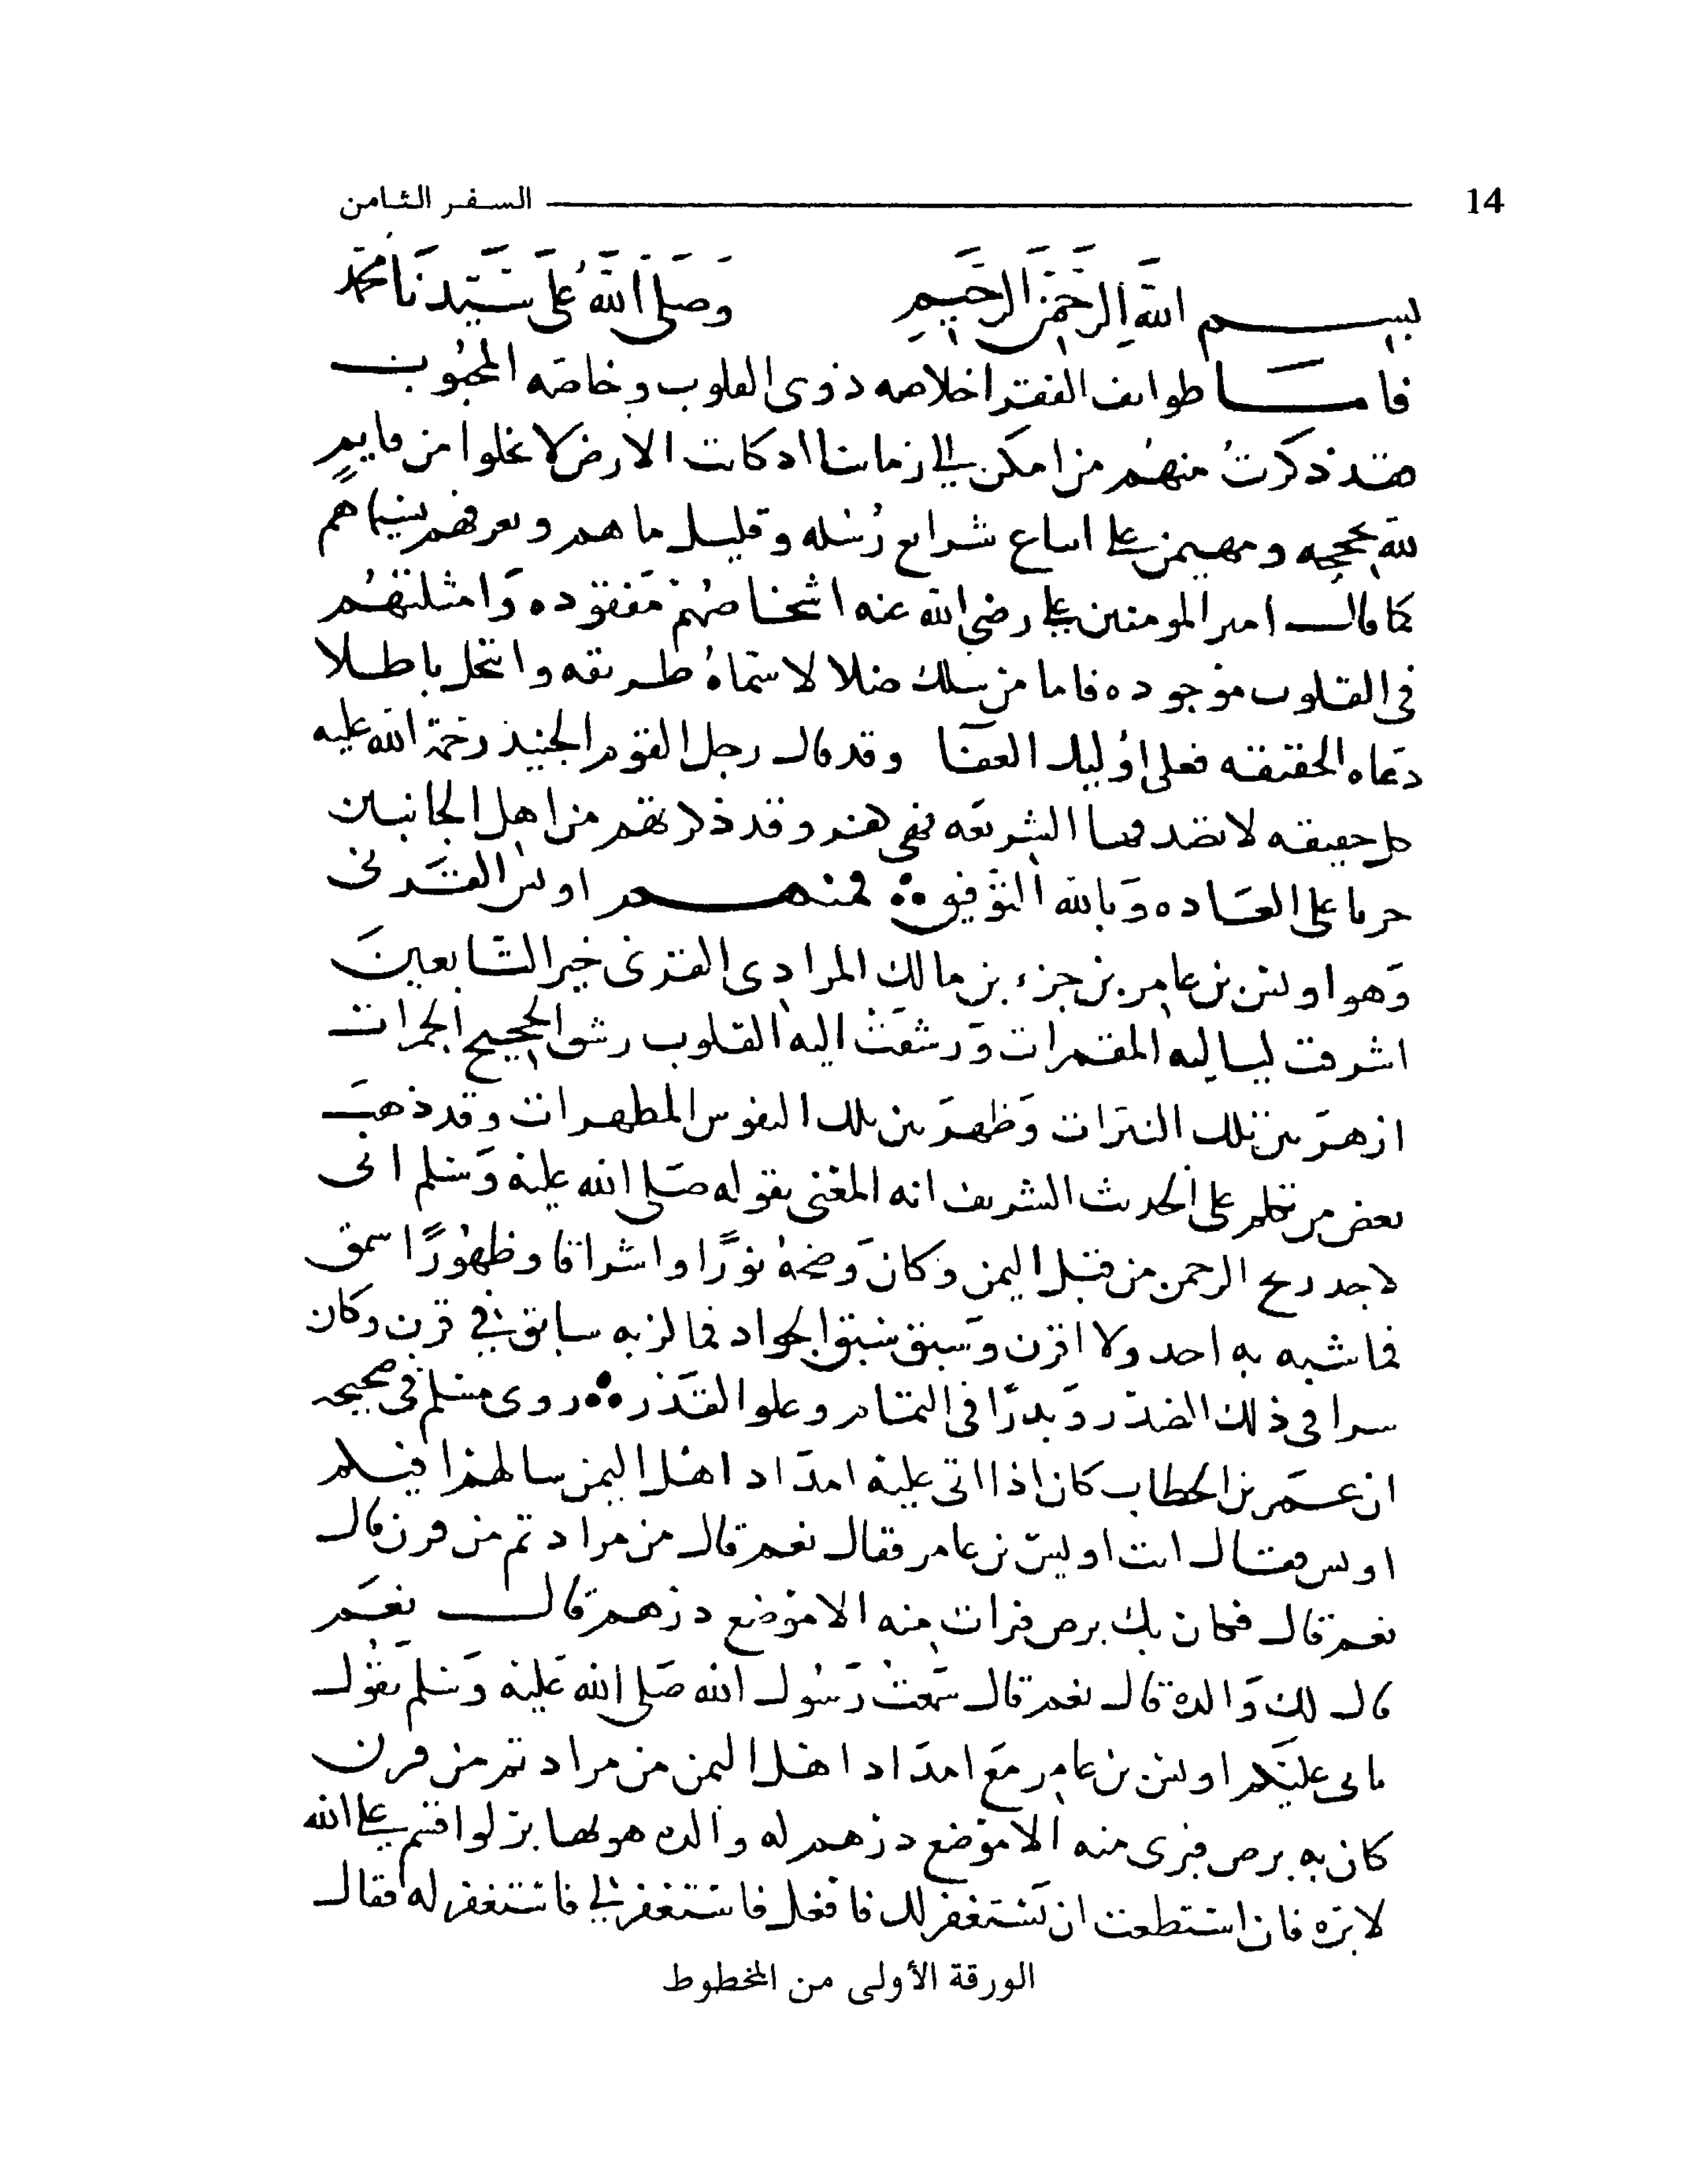 14 السفر الثامن
بسم الله الرحمن الرحيم وصلى الله على سيدنا محمد
فاما طوائف الفقرا خلاصه ذوى القلوب وخاصه المحبوب
فقد ذكرت منهم من امكن الى زماننا اذ كانت الارض لا تخلوا من قايم
لله بحججه ومهيمن على اتباع شرايع رسله وقليل ما هم وتعرفهم بسيماهم
كما قال امير المومنين على رضى الله عنه اشخاصهم مفقوده وامثلتهم
فى القلوب موجوده فاما من سلك ضلالا سماه طريقه وانتحل باطلا
دعاه الحقيقه فعلى اوليك العفا وقد قال رجل القوم الجنيد رحمة الله عليه
كل حقيقه لا تصدقها الشريعه فهى وقد ذكرتهم من اهل الجانبين
جريا على العاده وبالله التوفيق فمنهم اويس القرنى
وهو اويس بن عامر بن جزء بن مالك المرادى القرنى خير التابعين
اشرقت لياليه المقمرات ورشقت اليه القلوب رشق الحجيج الجمرات
ازهر بين تلك النيرات وظهر بين تلك النفوس المطهرات وقد ذهب
بعض من تكلم على الحديث الشريف انه المعنى بقوله صلى الله عليه وسلم انى
لاجد ريح الرحمن من قبل اليمن وكان وضحه نورا واشراقا وظهورا سمق
فما شبه به احد ولا اقرن وسبق سبق الجواد فما لز به سابق فى قرن وكان
سرا فى ذلك الصدر وبدرا فى التمام وعلو القدر روى مسلم فى صحيحه
ان عمر بن الخطاب كان اذا اتى عليه امداد اهل اليمن سالهم افيكم
اويس فقال انت اويس بن عامر فقال نعم قال من مراد ثم من قرن قال
نعم قال فكان بك برص فبرات منه الا موضع درهم قال نعم
قال لك والدة قال نعم قال سمعت رسول الله صلى الله عليه وسلم يقول
ياتى عليكم اويس بن عامر مع امداد اهل اليمن من مراد ثم من قرن
كان به برص فبرى منه الا موضع درهم له والده هو بها بر لو اقسم على الله
لابره فان استطعت ان يستغفر لك فافعل فاستغفر لى فاستغفر له فقال
الورقة الأولى من المخطوط